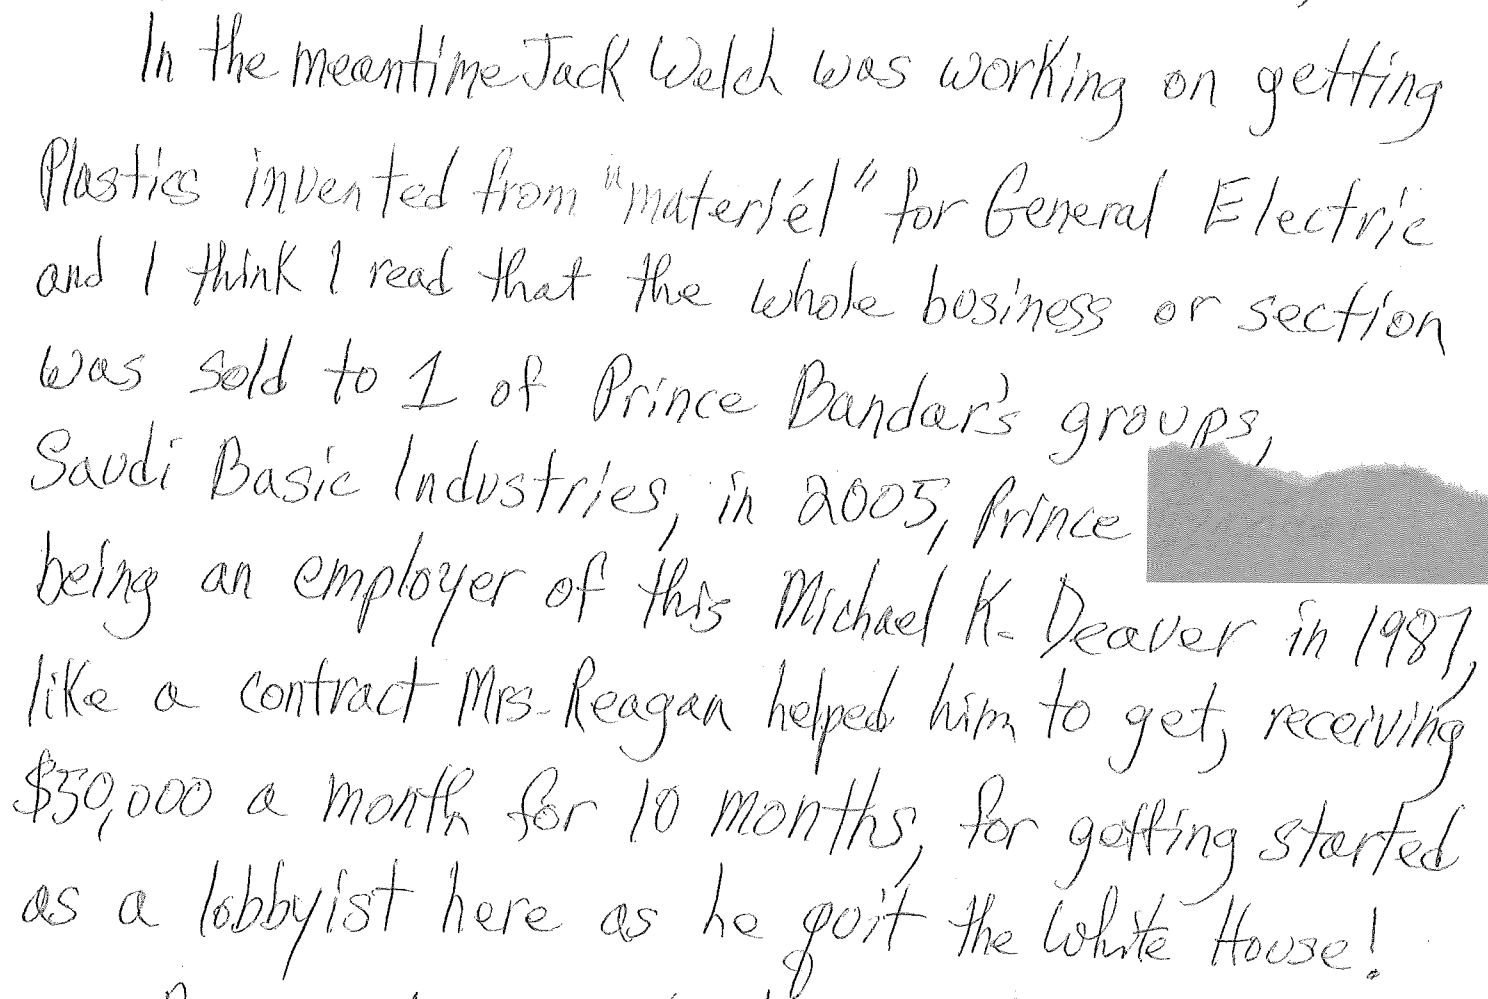 In the meantime Jack Welch was working on getting
Plastics invented from "materiél" for General Electric
and I think I read that the whole business or section
was sold to 1 of Prince Bandar's groups,
Saudi Basic Industries, in 2005, Prince
being an employer of this Michael K. Deaver in 1987,
like a contract Mrs. Reagan helped him to get, receiving
$50,000 a month for 10 months, for getting started
as a lobbyist here as he quit the White House!